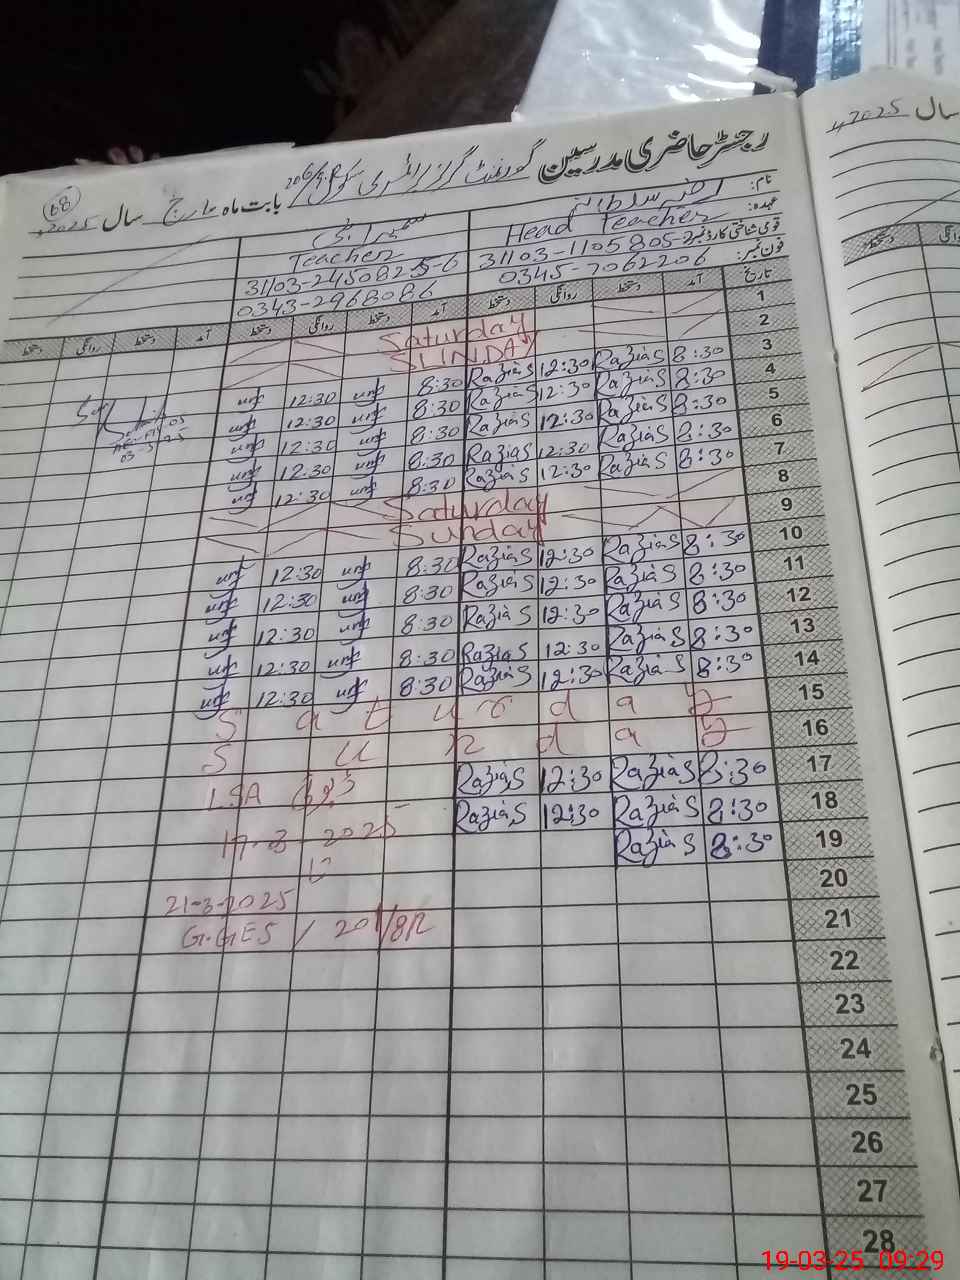 رجسٹر حاضری مدرسین گورنمنٹ گرلز پرائمری سکول 206/8.R بابت ماہ مارچ سال 2025ء
68
سال 2025ء
نام: رضیہ سلطانہ
عہدہ: Head Teacher Teacher
قومی شناختی کارڈ نمبر: 31103-1105805-2 31103-2450825-6
فون نمبر: 0345-7062206 0343-2968086
تاریخ آمد دستخط روانگی دستخط آمد دستخط روانگی دستخط آمد دستخط روانگی دستخط
1 Saturday
2 SUNDAY
3 8:30 Razia S 12:30 Razia S 8:30 12:30
4 8:30 Razia S 12:30 Razia S 8:30 12:30
5 8:30 Razia S 12:30 Razia S 8:30 12:30
6 8:30 Razia S 12:30 Razia S 8:30 12:30
7 8:30 Razia S 12:30 Razia S 8:30 12:30
8 Saturday
9 Sunday
10 8:30 Razia S 12:30 Razia S 8:30 12:30
11 8:30 Razia S 12:30 Razia S 8:30 12:30
12 8:30 Razia S 12:30 Razia S 8:30 12:30
13 8:30 Razia S 12:30 Razia S 8:30 12:30
14 8:30 Razia S 12:30 Razia S 8:30 12:30
15 Saturday
16 Sunday
17 8:30 Razia S 12:30 Razia S LSA
18 8:30 Razia S 12:30 Razia S 17-3-2025
19 8:30 Razia S
20 21-3-2025
21 G.GES / 201/8R
22
23
24
25
26
27
28
19-03-25 09:29